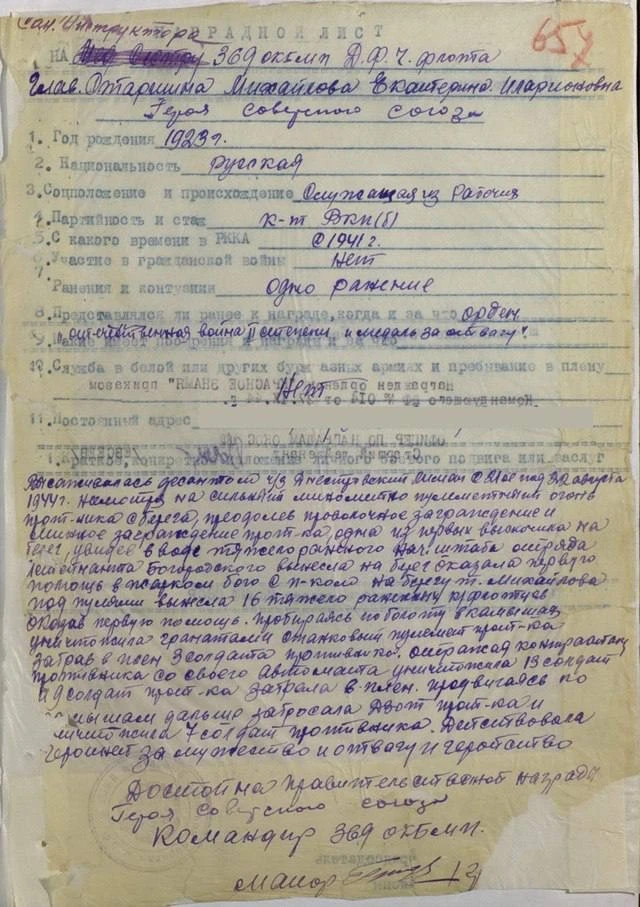 Сан. Инструктора
НАГРАДНОЙ ЛИСТ
657
НА 369 ОКБМП Д.Ф.Ч. флота
Глав. Старшина Михайлова Екатерина Иларионовна
Героя Советского союза
1. Год рождения 1923 г.
2. Национальность русская
3. Соцположение и происхождение Служащая из рабочих
4. Партийность и стаж к-т ВКП(б)
5. С какого времени в РККА С 1941 г.
6. Участие в гражданской войны Нет
7. Ранения и контузии одно ранение
8. Представлялся ли ранее к награде, когда и за что орден
"отечественная война II степени и медаль за отвагу".
9. Какие имеет поощрения и награды и за что
10. Служба в белой или других буржуазных армиях и пребывание в плену
Нет
Награжден орденом "КРАСНОЕ ЗНАМЯ" приказом
Командующего
11. Постоянный адрес
ОФИЦЕР ПО НАГРАДАМ
Старший лейтенант
1. Краткое, конкретное изложение личного боевого подвига или заслуг
Высаживалась десантом ч/з Днестровский Лиман С 21 ое под 22 августа
1944 г. несмотря на сильный минометно пулеметный огонь
прот-ника с берега, преодолев проволочное заграждение и
минное заграждение прот-ка, одна из первых выскочила на
берег, увидев в воде тяжело раненого нач. штаба отряда
лейтенанта Богородского вынесла на берег оказала первую
помощь в жарком бою с п-ком на берегу т. Михайлова
под пулями вынесла 16 тяжело раненых к/флотцев
оказав первую помощь. пробираясь по болоту в камышах
уничтожила гранатами станковый пулемет прот-ка
забрав в плен 3 солдата противника. отражая контратаку
противника со своего автомата уничтожила 13 солдат
и 9 солдат прот-ка забрала в плен. продвигаясь по
камышам дальше забросала дзот прот-ка и
уничтожила 7 солдат противника. Действовала
героиней за мужество и отвагу и геройство
Достойна правительственной награды
Героя Советского союза
Командир 369 ОКБМП.
Майор